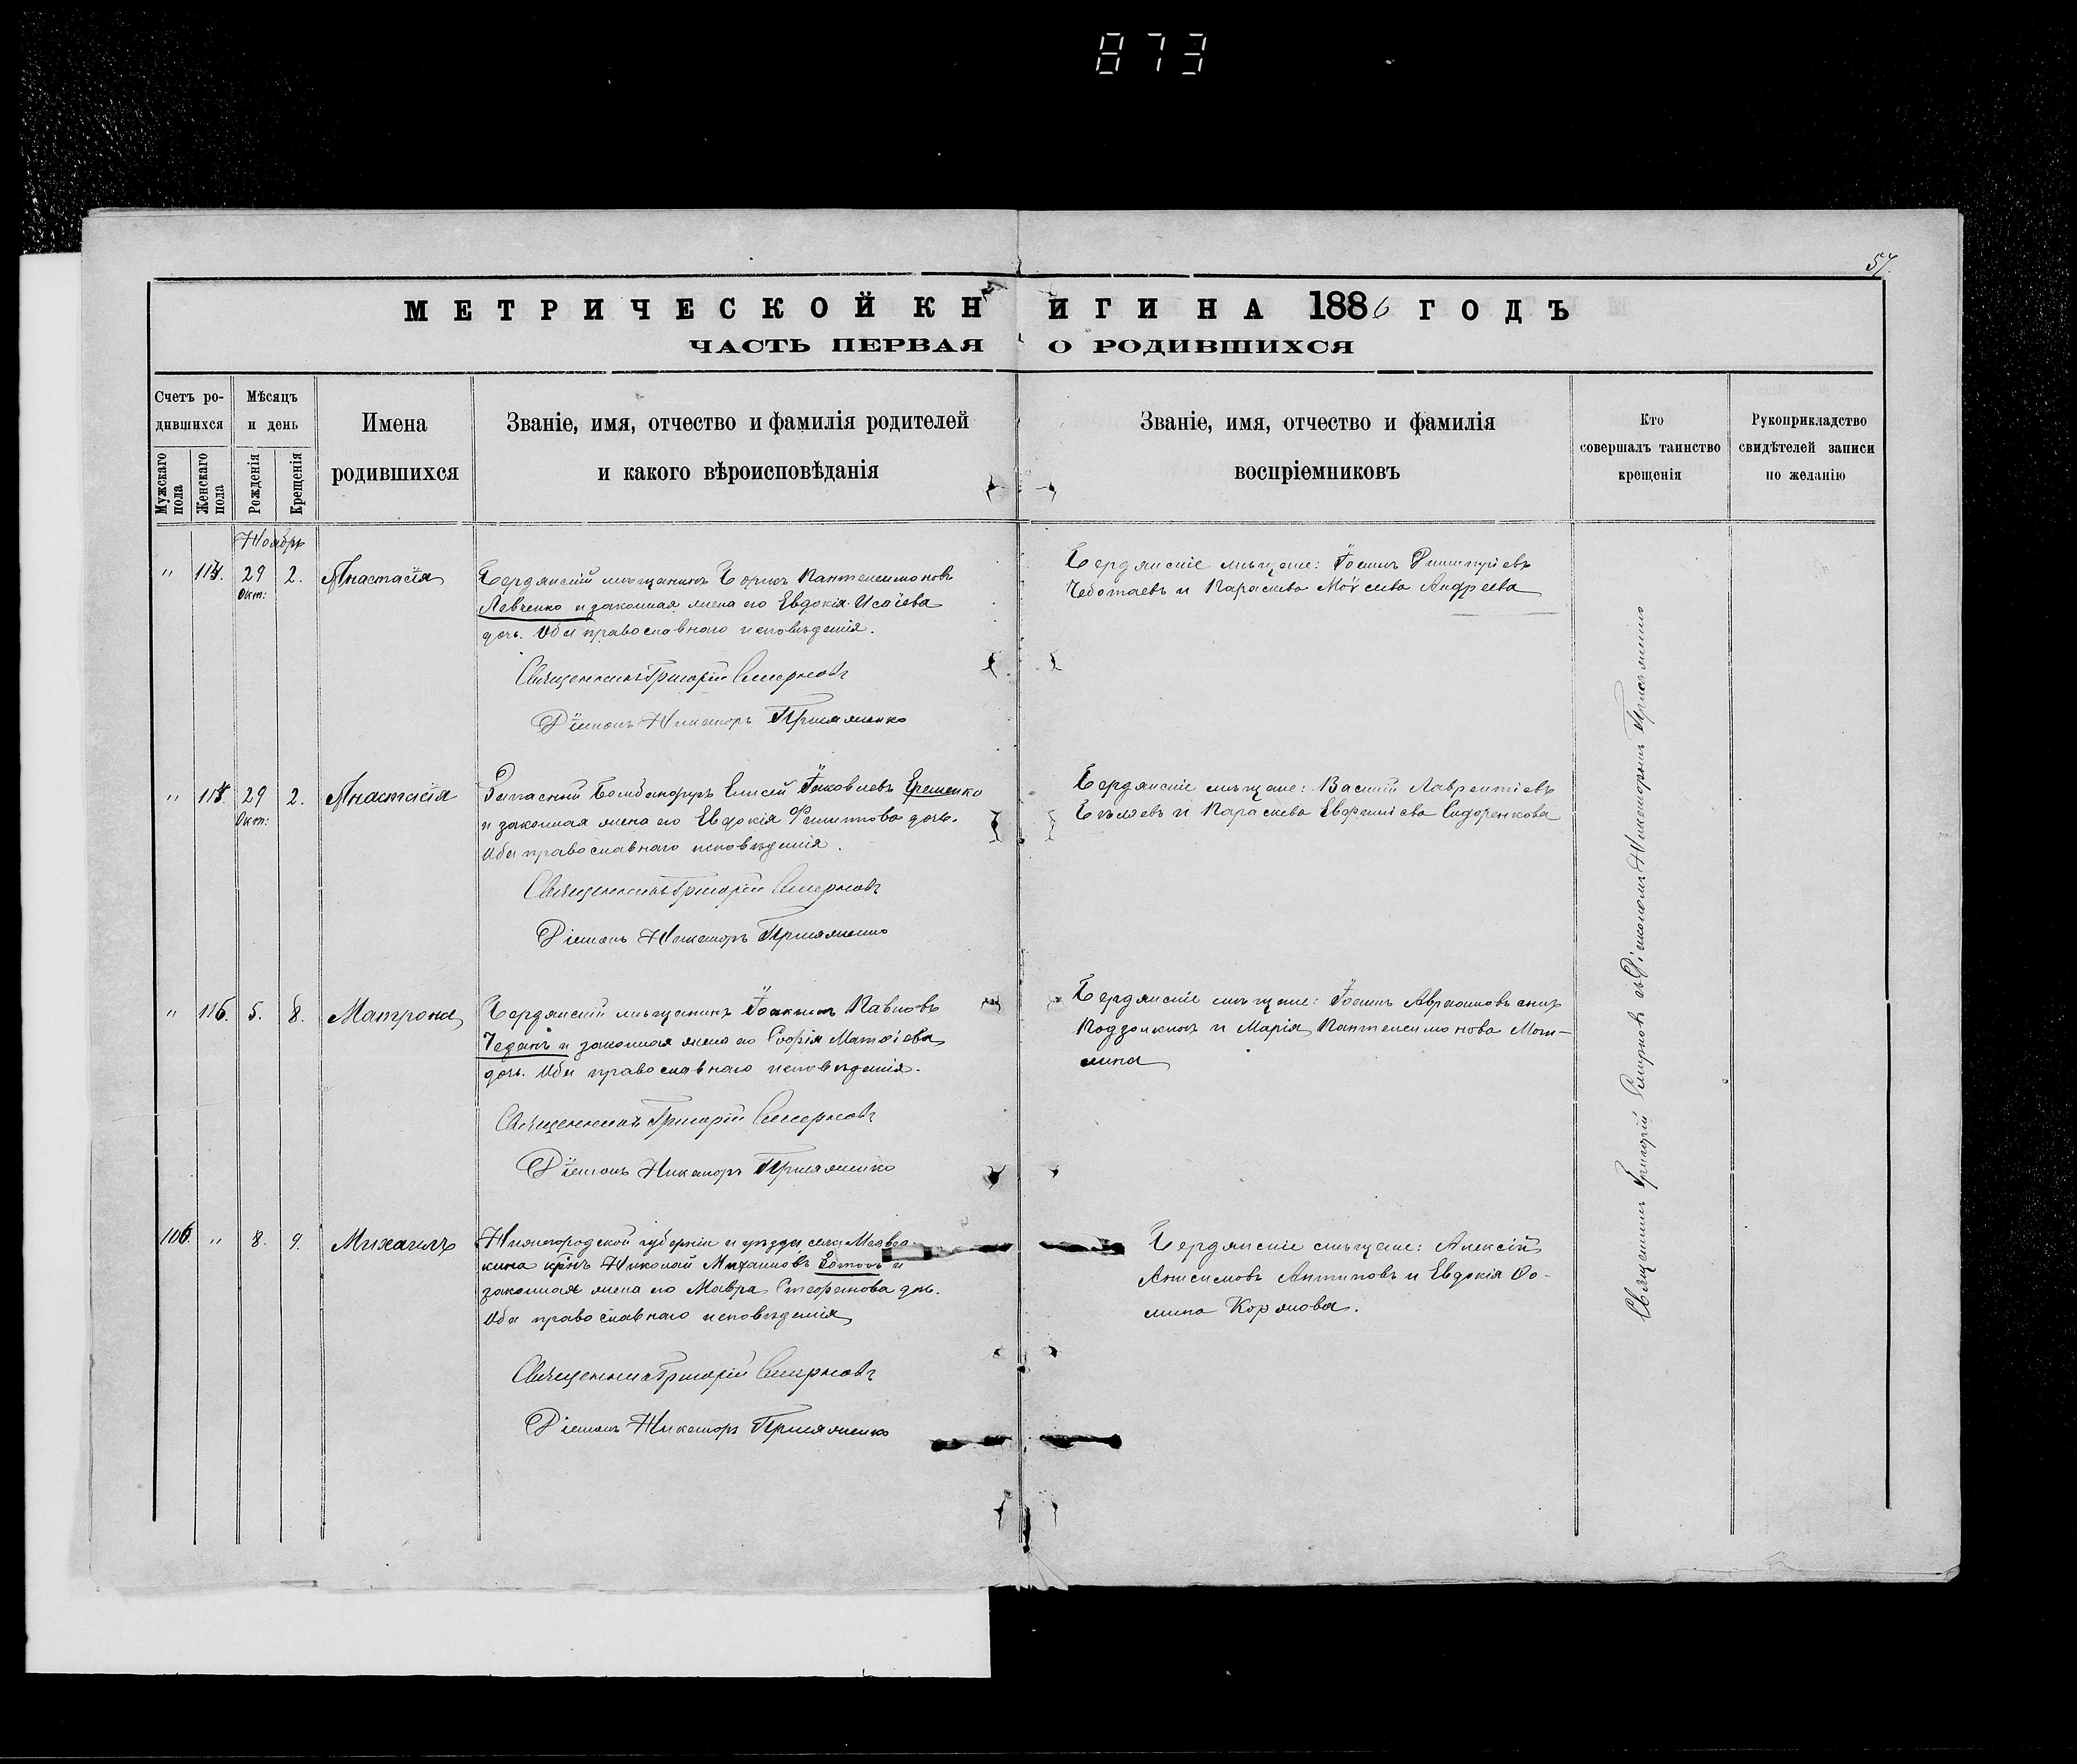 873
57.
МЕТРИЧЕСКОЙ КНИГИ НА 1886 ГОДЪ
ЧАСТЬ ПЕРВАЯ О РОДИВШИХСЯ
Счетъ ро-
дившихся
Мужскаго
пола
Женскаго
пола
Мѣсяцъ
и день
Рожденія
Крещенія
Имена
родившихся
Званіе, имя, отчество и фамилія родителей
и какого вѣроисповѣданія
Званіе, имя, отчество и фамилія
воспріемниковъ
Кто
совершалъ таинство
крещенія
Рукоприкладство
свидѣтелей записи
по желанію
Ноябрь
" 114. 29 2. Анастасія
Окт:
Бердянскій мѣщанинъ Борисъ Пантелеимоновъ
Левченко и законная жена его Евдокія Исаіева
дочь. Оба православнаго исповѣданія.
Священникъ Григорій Смирновъ
Діаконъ Никаноръ Присяженко
Бердянскіе мѣщане: Іоаннъ
Чеботаевъ и Параскева Моѵсеева Андреева
" 115. 29 2. Анастасія
Окт:
Запасный Бомбандиръ Елисей Іаковлевъ Ерешенко
и законная жена его Евдокія Филиппова дочь.
Оба православнаго исповѣданія.
Священникъ Григорій Смирновъ
Діаконъ Никаноръ Присяженко
Бердянскіе мѣщане: Василій Лаврентіевъ
Бѣляевъ и Параскева Евфиміева Сидоренкова
" 116. 5. 8. Матрона
Бердянскій мѣщанинъ Іоакимъ Павловъ
Чеданъ и законная жена его Софія Матѳіева
дочь. Оба православнаго исповѣданія.
Священникъ Григорій Смирновъ
Діаконъ Никаноръ Присяженко
Бердянскіе мѣщане: Іоаннъ Авраамовъ сынъ
Подзолкинъ и Марія Пантелеимонова Мот-
лина
106. " 8. 9. Михаилъ
Нижегородской губерніи и уѣзда села Медвед-
кина крнъ Николай Михаиловъ Зотовъ и
законная жена его Мавра Стефанова дочь.
Оба православнаго исповѣданія
Священникъ Григорій Смирновъ
Діаконъ Никаноръ Присяженко
Бердянскіе мѣщане: Алексій
Анисимовъ Антиповъ и Евдокія Ѳо-
мина Корякова.
Священникъ Григорій Смирновъ съ Діакономъ Никаноромъ Присяженко